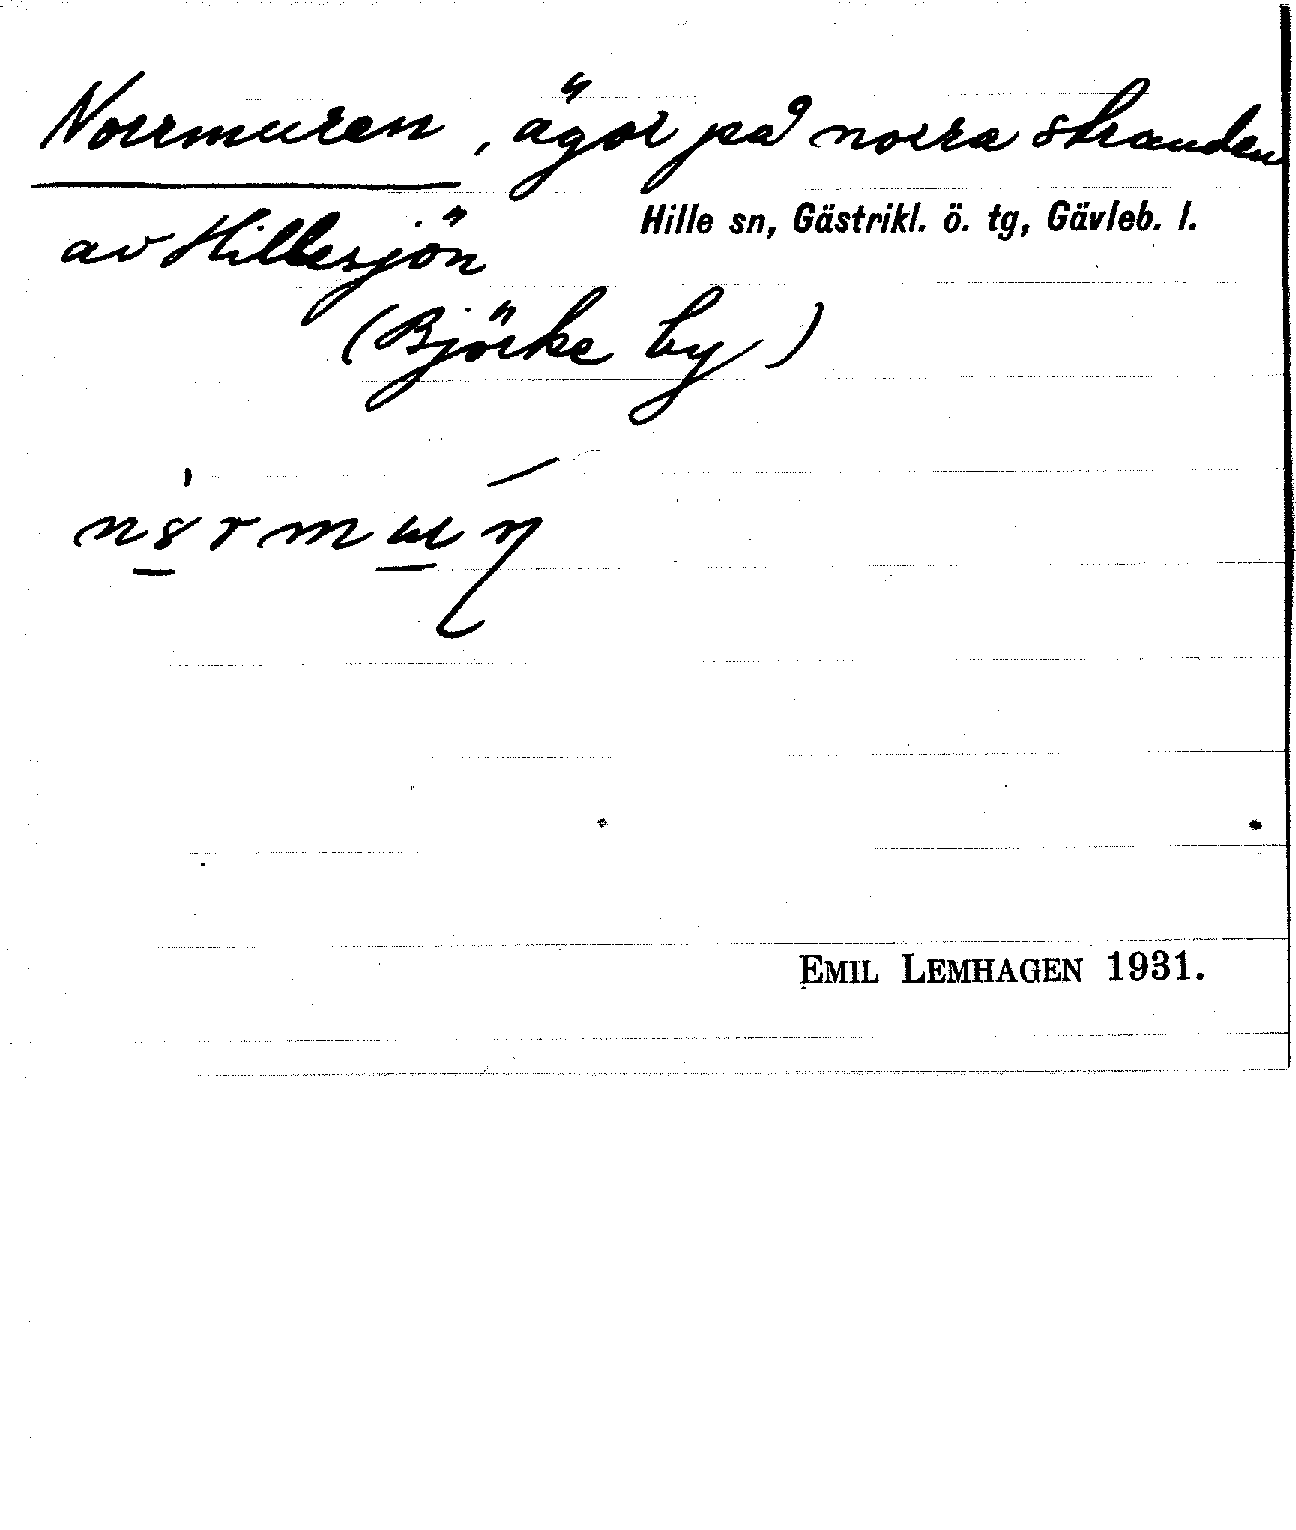 Norrmuren, ägor på norra stranden
Hille sn, Gästrikl. ö. tg, Gävleb. l.
av Hillesjön
(Björke by)
EMIL LEMHAGEN 1931.